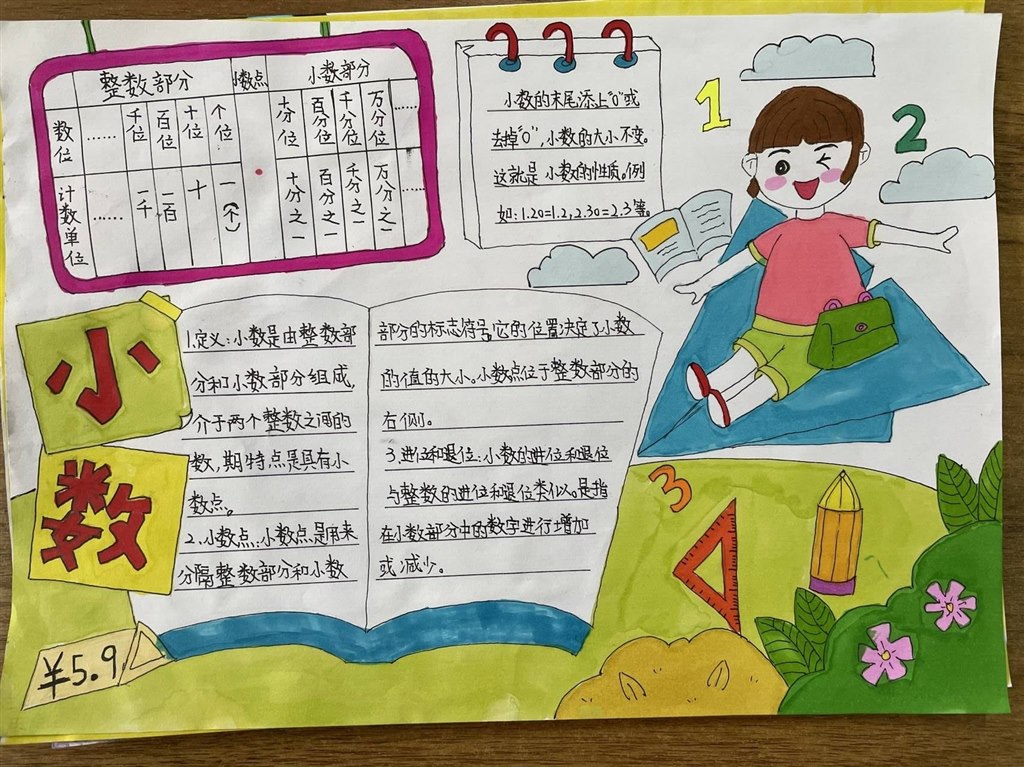 整数部分 小数点 小数部分
数位 …… 千位 百位 十位 个位 · 十分位 百分位 千分位 万分位 ……
计数单位 …… 一千 一百 十 一(个) 十分之一 百分之一 千分之一 万分之一 ……
小数的末尾添上"0"或
去掉"0",小数的大小不变。
这就是小数的性质。例
如:1.20=1.2,2.30=2.3等。
1
2
3
小
数
1.定义:小数是由整数部
分和小数部分组成,
介于两个整数之间的
数,期特点是具有小
数点。
2.小数点:小数点是用来
分隔整数部分和小数
部分的标志符号,它的位置决定了小数
的值的大小。小数点位于整数部分的
右侧。
3.进位和退位:小数的进位和退位
与整数的进位和退位类似。是指
在小数部分中的数字进行增加
或减少。
¥5.9